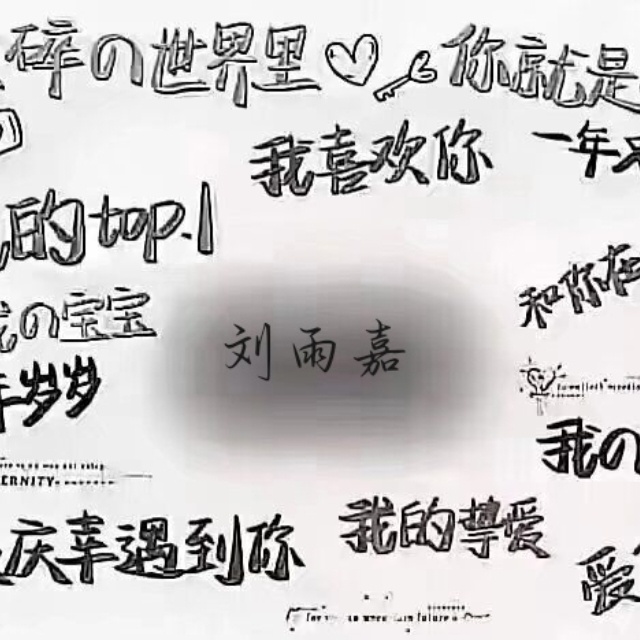 碎の世界里
你就是
我喜欢你
一年
我的top.1
和你在
我の宝宝
刘雨嘉
年岁岁
我の
ERNITY
庆幸遇到你
我的挚爱
爱
future